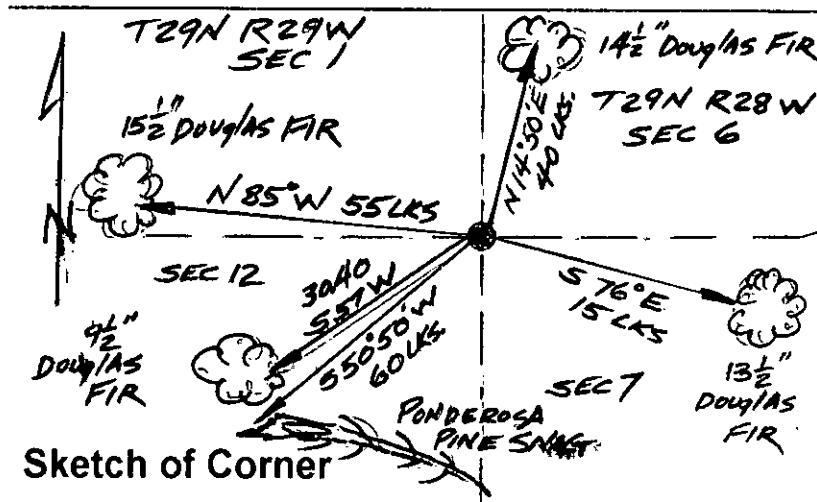 T29N R29W
SEC 1
14½" DouglAS FIR
T29N R28W
SEC 6
15½" DouglAS FIR
N 14°50'E
40 LKS.
N 85° W 55 LKS
N
SEC 12
30.40
S 57 W
S 50°50' W
60 LKS.
S 76° E
15 LKS
9½"
DouglAS
FIR
SEC 7
13½"
DouglAS
FIR
PONDEROSA
PINE SNAG
Sketch of Corner